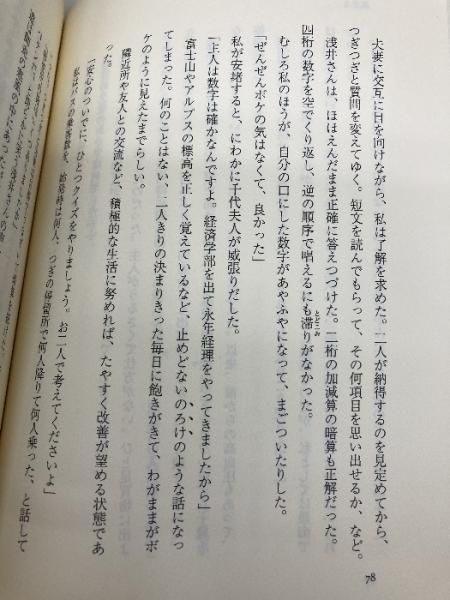 夫妻に交互に目を向けながら、私は了解を求めた。二人が納得するのを見定めてから、
つぎつぎと質問を変えてゆく。短文を読んでもらって、その何項目を思い出せるか、など。
浅井さんは、ほほえんだまま正確に答えつづけた。二桁の加減算の暗算も正解だった。
四桁の数字を空でくり返し、逆の順序で唱えるにも滞りがなかった。
とどこお
むしろ私のほうが、自分の口にした数字があやふやになって、まごついたりした。
「ぜんぜんボケの気はなくて、良かった」
私が安堵すると、にわかに千代夫人が威張りだした。
「主人は数字は確かなんですよ。経済学部を出て永年経理をやってきましたから」
富士山やアルプスの標高を正しく覚えているなど、止めどないのろけのような話になっ
てしまった。何のことはない、二人きりの決まりきった毎日に飽きがきて、わがままがボ
ケのように見えたまでらしい。
隣近所や友人との交流など、積極的な生活に努めれば、たやすく改善が望める状態であ
った。
「安心のついでに、ひとつクイズをやりましょう。お二人で考えてくださいよ」
私はバスの乗客数を、始発時は何人、つぎの停留所で何人降りて何人乗った、と話して
78